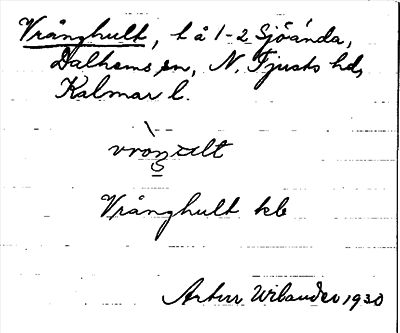 Vrånghult, t å 1-2 Sjöända,
Dalhems sn, N. Tjusts hd,
Kalmar l.
Vrånghult kb
Artur Wilander 1930